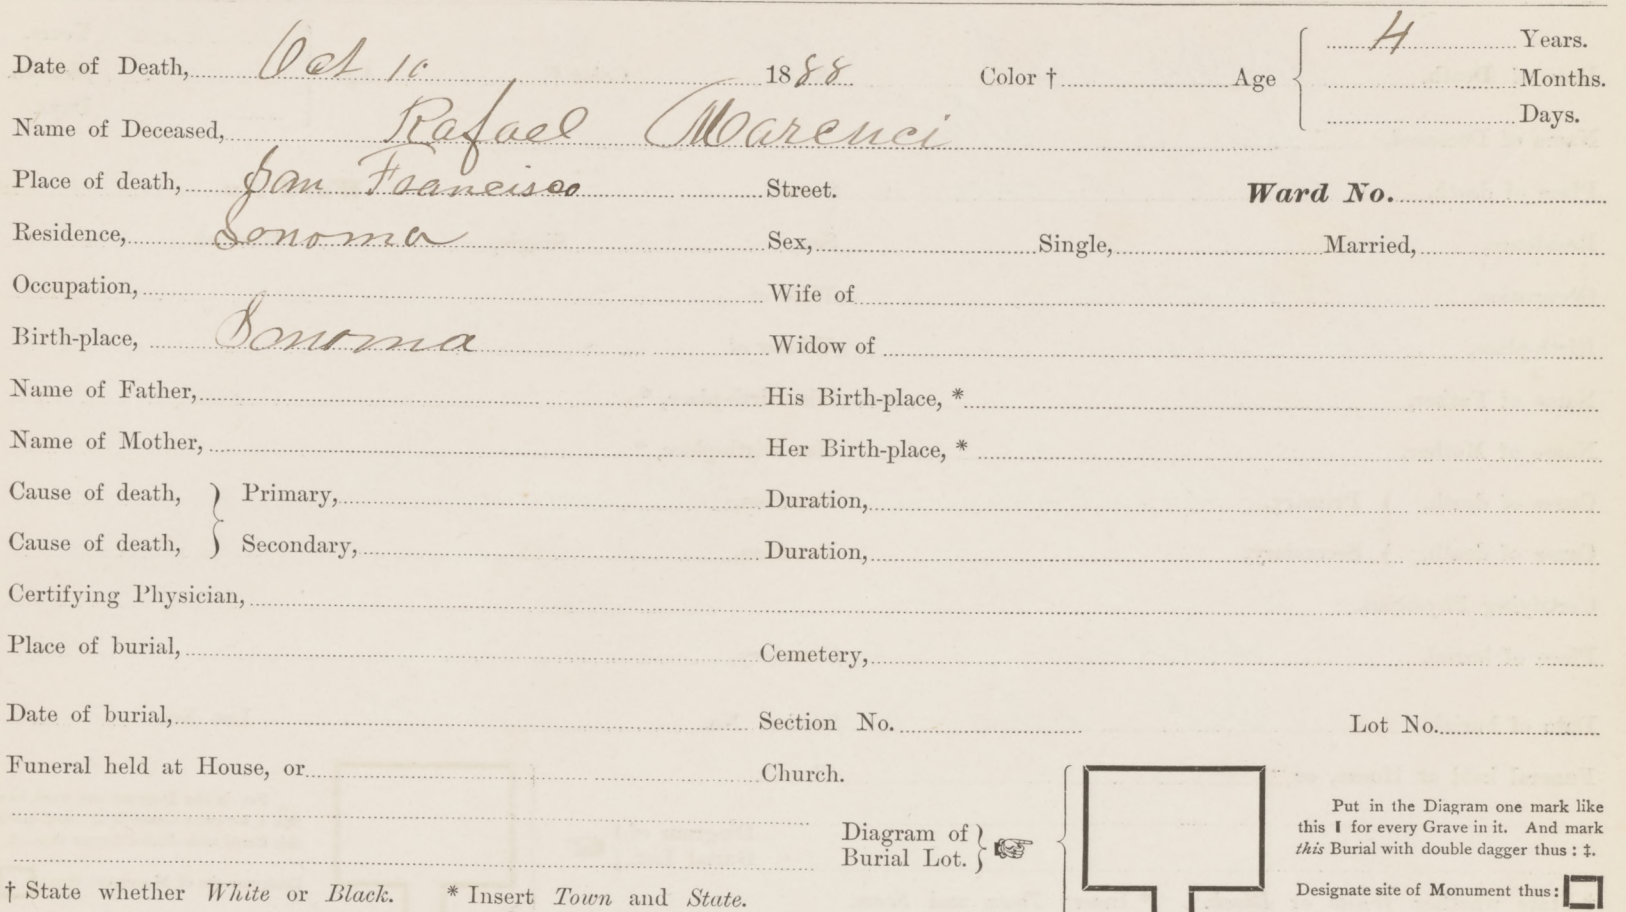 Date of Death, Oct 10 1888 Color † Age 4 Years.
Months.
Days.
Name of Deceased, Rafael Marenci
Place of death, San Francisco Street. Ward No.
Residence, Sonoma Sex, Single, Married,
Occupation, Wife of
Birth-place, Sonoma Widow of
Name of Father, His Birth-place, *
Name of Mother, Her Birth-place, *
Cause of death, } Primary, Duration,
Cause of death, } Secondary, Duration,
Certifying Physician,
Place of burial, Cemetery,
Date of burial, Section No. Lot No.
Funeral held at House, or Church.
Diagram of
Burial Lot.
Put in the Diagram one mark like
this I for every Grave in it. And mark
this Burial with double dagger thus : ‡.
Designate site of Monument thus :
† State whether White or Black. * Insert Town and State.